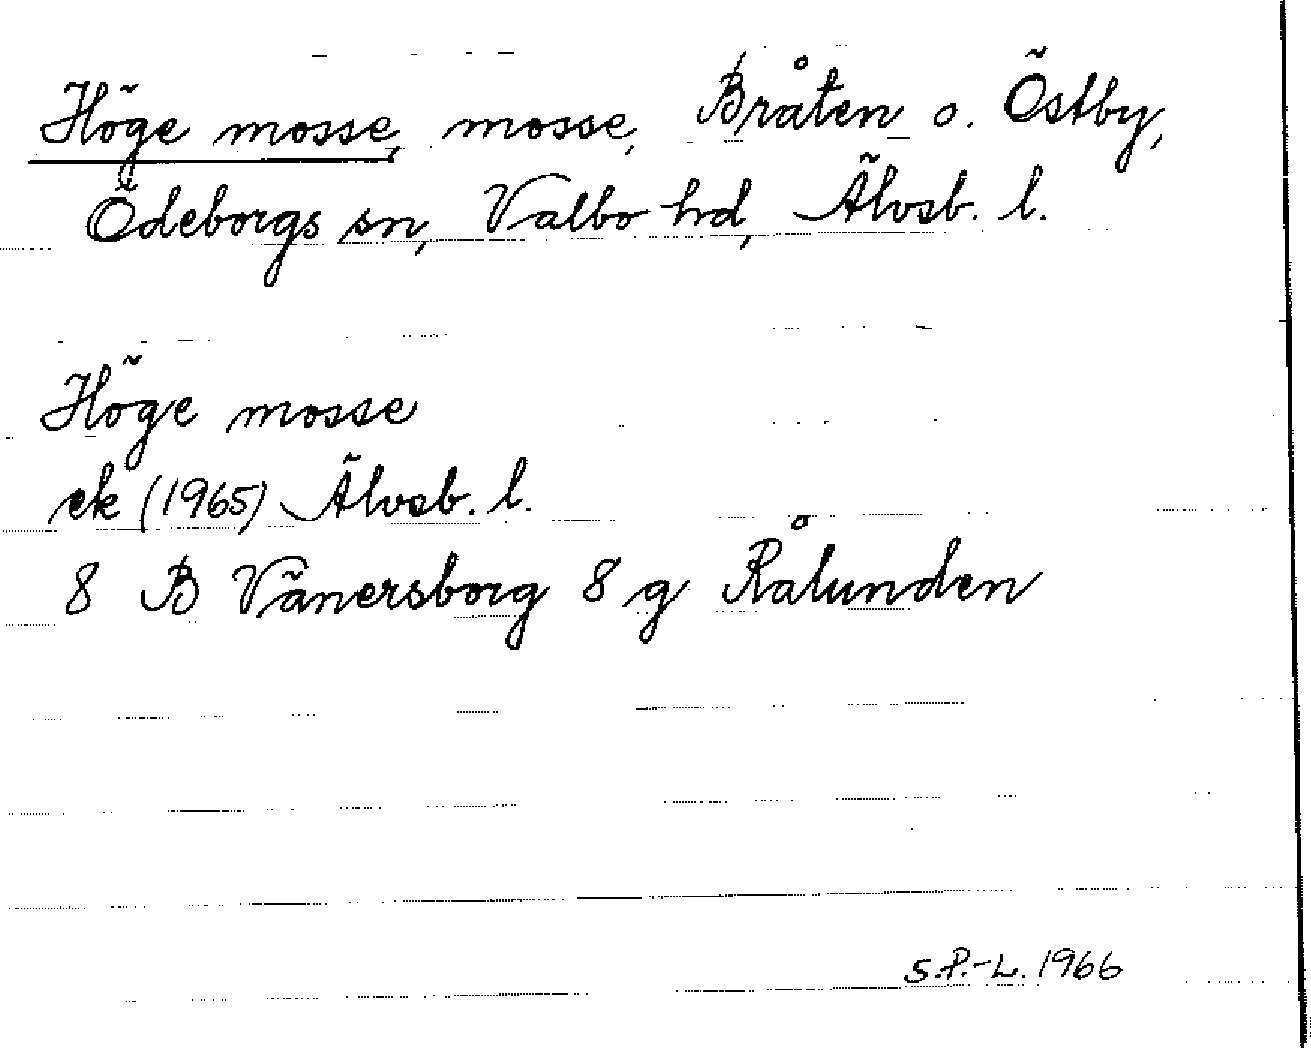 Höge mosse, mosse, Bråten o. Östby,
Ödeborgs sn, Valbo hd, Älvsb. l.
Höge mosse
ek (1965) Älvsb. l.
8 B Vänersborg 8 g Rålunden
S.P.-L. 1966